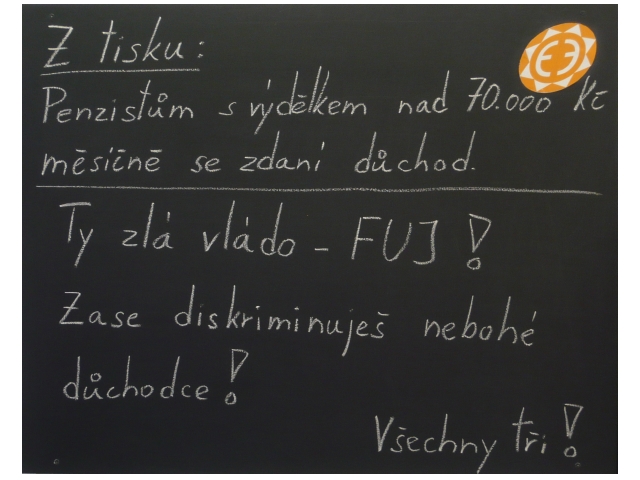 Z tisku:
Penzistům s výdělkem nad 70.000 Kč
měsíčně se zdaní důchod.
Ty zlá vládo - FUJ!
Zase diskriminuješ nebohé
důchodce!
Všechny tři!